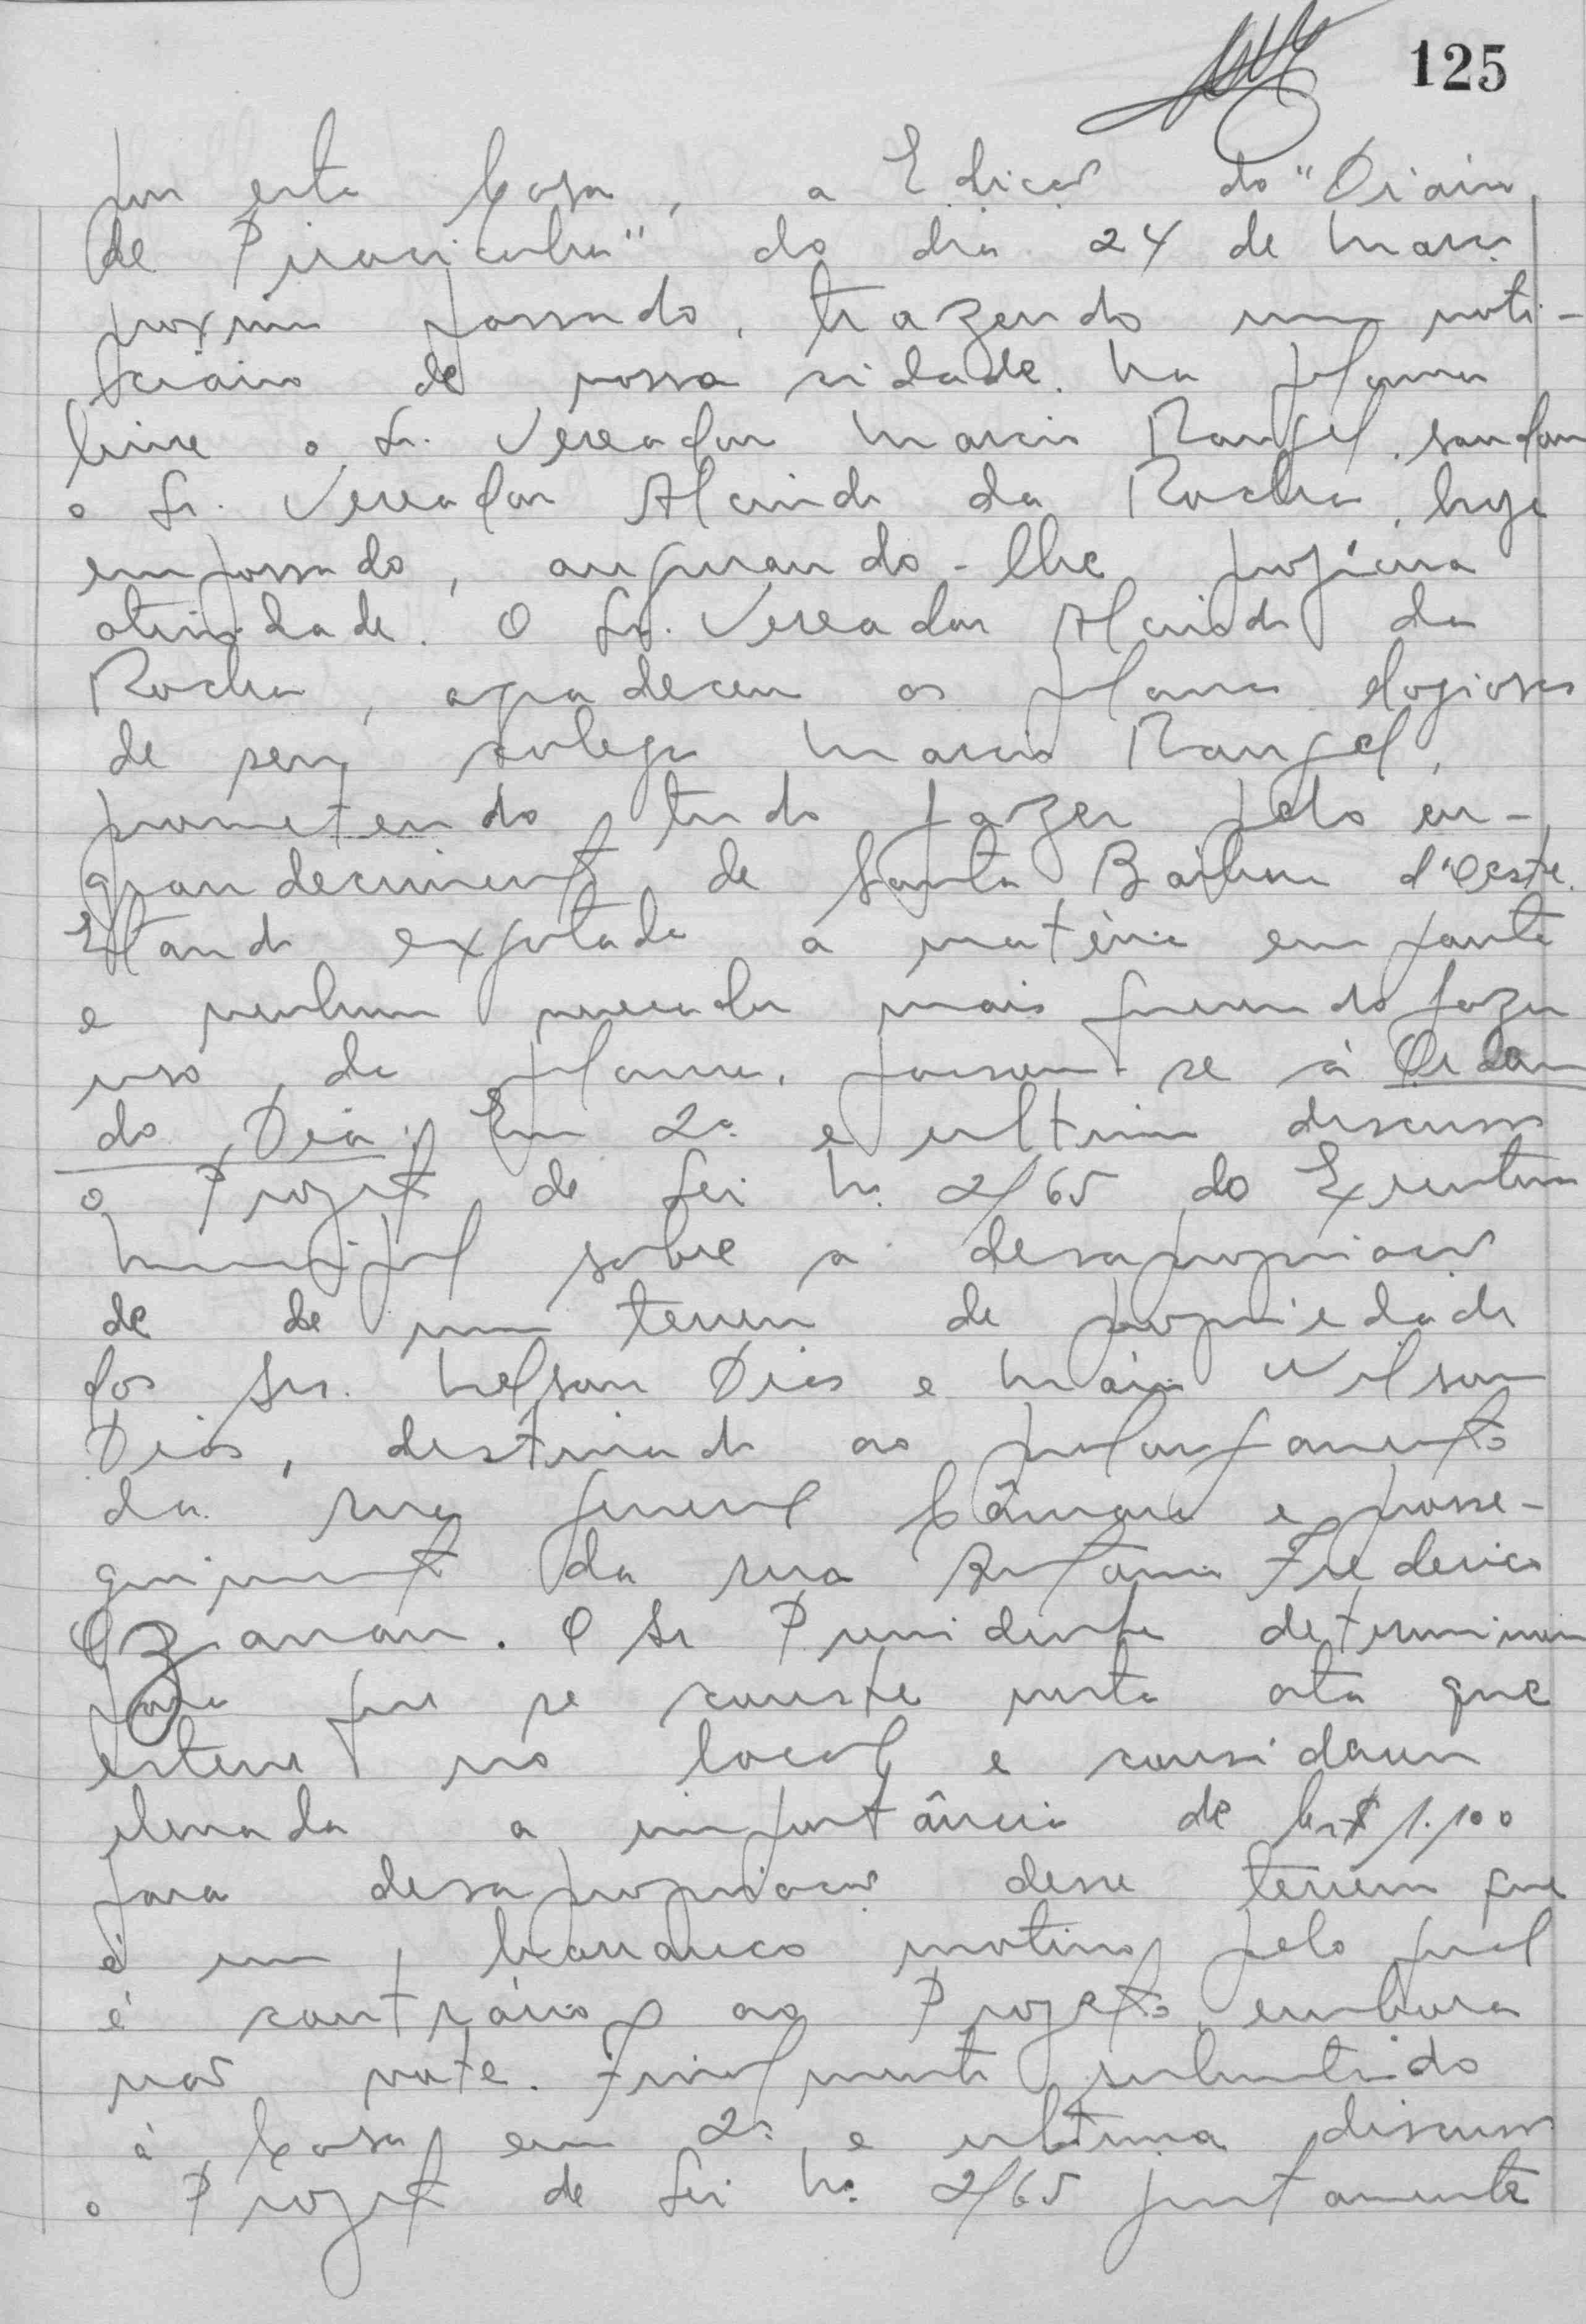 125
por esta Casa, a Edição do "Diário
de Piracicaba" do dia 24 de Março
proximo passado, trazendo um noti-
ciário de nossa cidade. Na palavra
livre o Sr. Vereador Marcio Rangel, saudou
o Sr. Vereador Alcindo da Rocha, hoje
empossado, augurando-lhe profícua
atividade. O Sr. Vereador Alcindo da
Rocha, agradeceu as palavras elogiosas
de seu colega Marcio Rangel,
prometendo tudo fazer pelo en-
grandecimento de Santa Barbara d'Oeste.
Estando esgotada a matéria em pauta
e nenhum vereador mais querendo fazer
uso da palavra, passou-se à Ordem
do Dia. Em 2ª e ultima discussão
o Projeto de Lei Nº 2/65 do Executivo
Municipal sobre a desapropriação
de de um terreno de propriedade
dos Srs. Nelson Dias e Mário Wilson
Dias, destinado ao prolongamento
da rua General Câmara e prosse-
guimento da rua Antônio Frederico
Ozanan. O Sr Presidente determinou
para que se conste nesta ata que
esteve no local e considerou
elevada a importância de Cr$ 1.100
para desapropriação desse terreno que
é um barranco motivo pelo qual
é contrário ao Projeto, embora
não vote. Finalmente submetido
à Casa em 2ª e ultima discussão
o Projeto de Lei Nº 2/65 juntamente